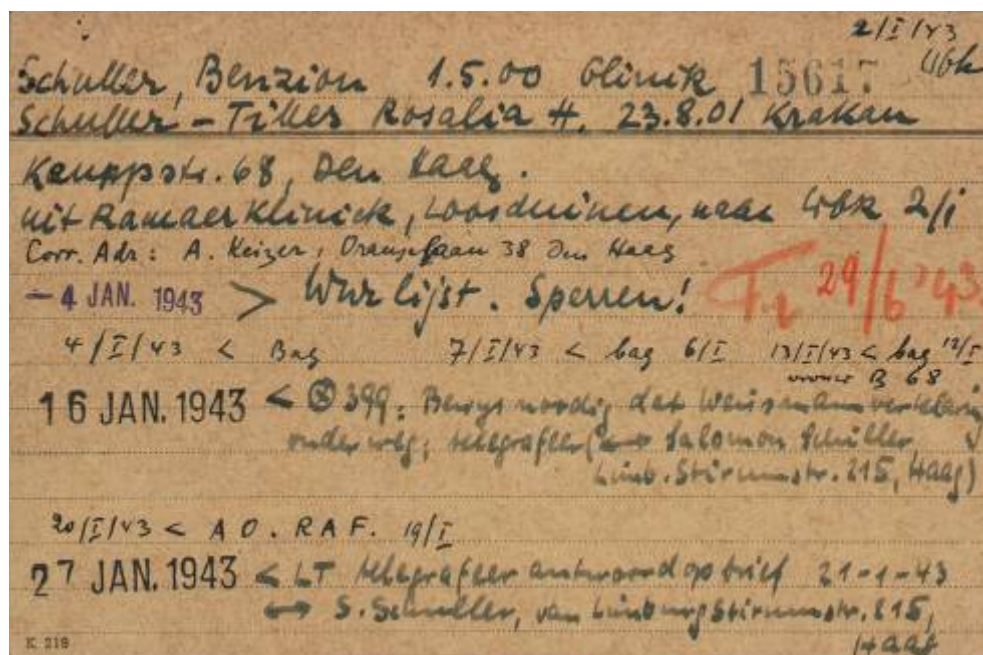 2/I/43
Schuller, Benzion 1.5.00 Glinik 15617 Wbk
Schuller - Tilles Rosalia H. 23.8.01 Krakau
Kauppstr. 68, Den Haag.
uit Ramaer Klinick, Loosduinen, naar Wbk 2/i
Corr. Adr: A. Keizer, Oranjelaan 38 Den Haag
- 4 JAN. 1943 > Wwr lijst. Sperren! 29/6 '43
4/I/43 < Bag 7/I/43 < bag 6/I 13/I/43 < bag 12/I
B 68
16 JAN. 1943 < 399: Bewys noodig dat Weismannverklaring
onderweg; telegrafeer (↔ Salomon Schuller
Limb. Stirumstr. 215, Haag)
20/I/43 < A O. RAF. 19/I
27 JAN. 1943 < LT telegrafeer antwoord op brief 21-1-43
↔ S. Schuller, van Limburg Stirumstr. 215,
Haag
K. 218